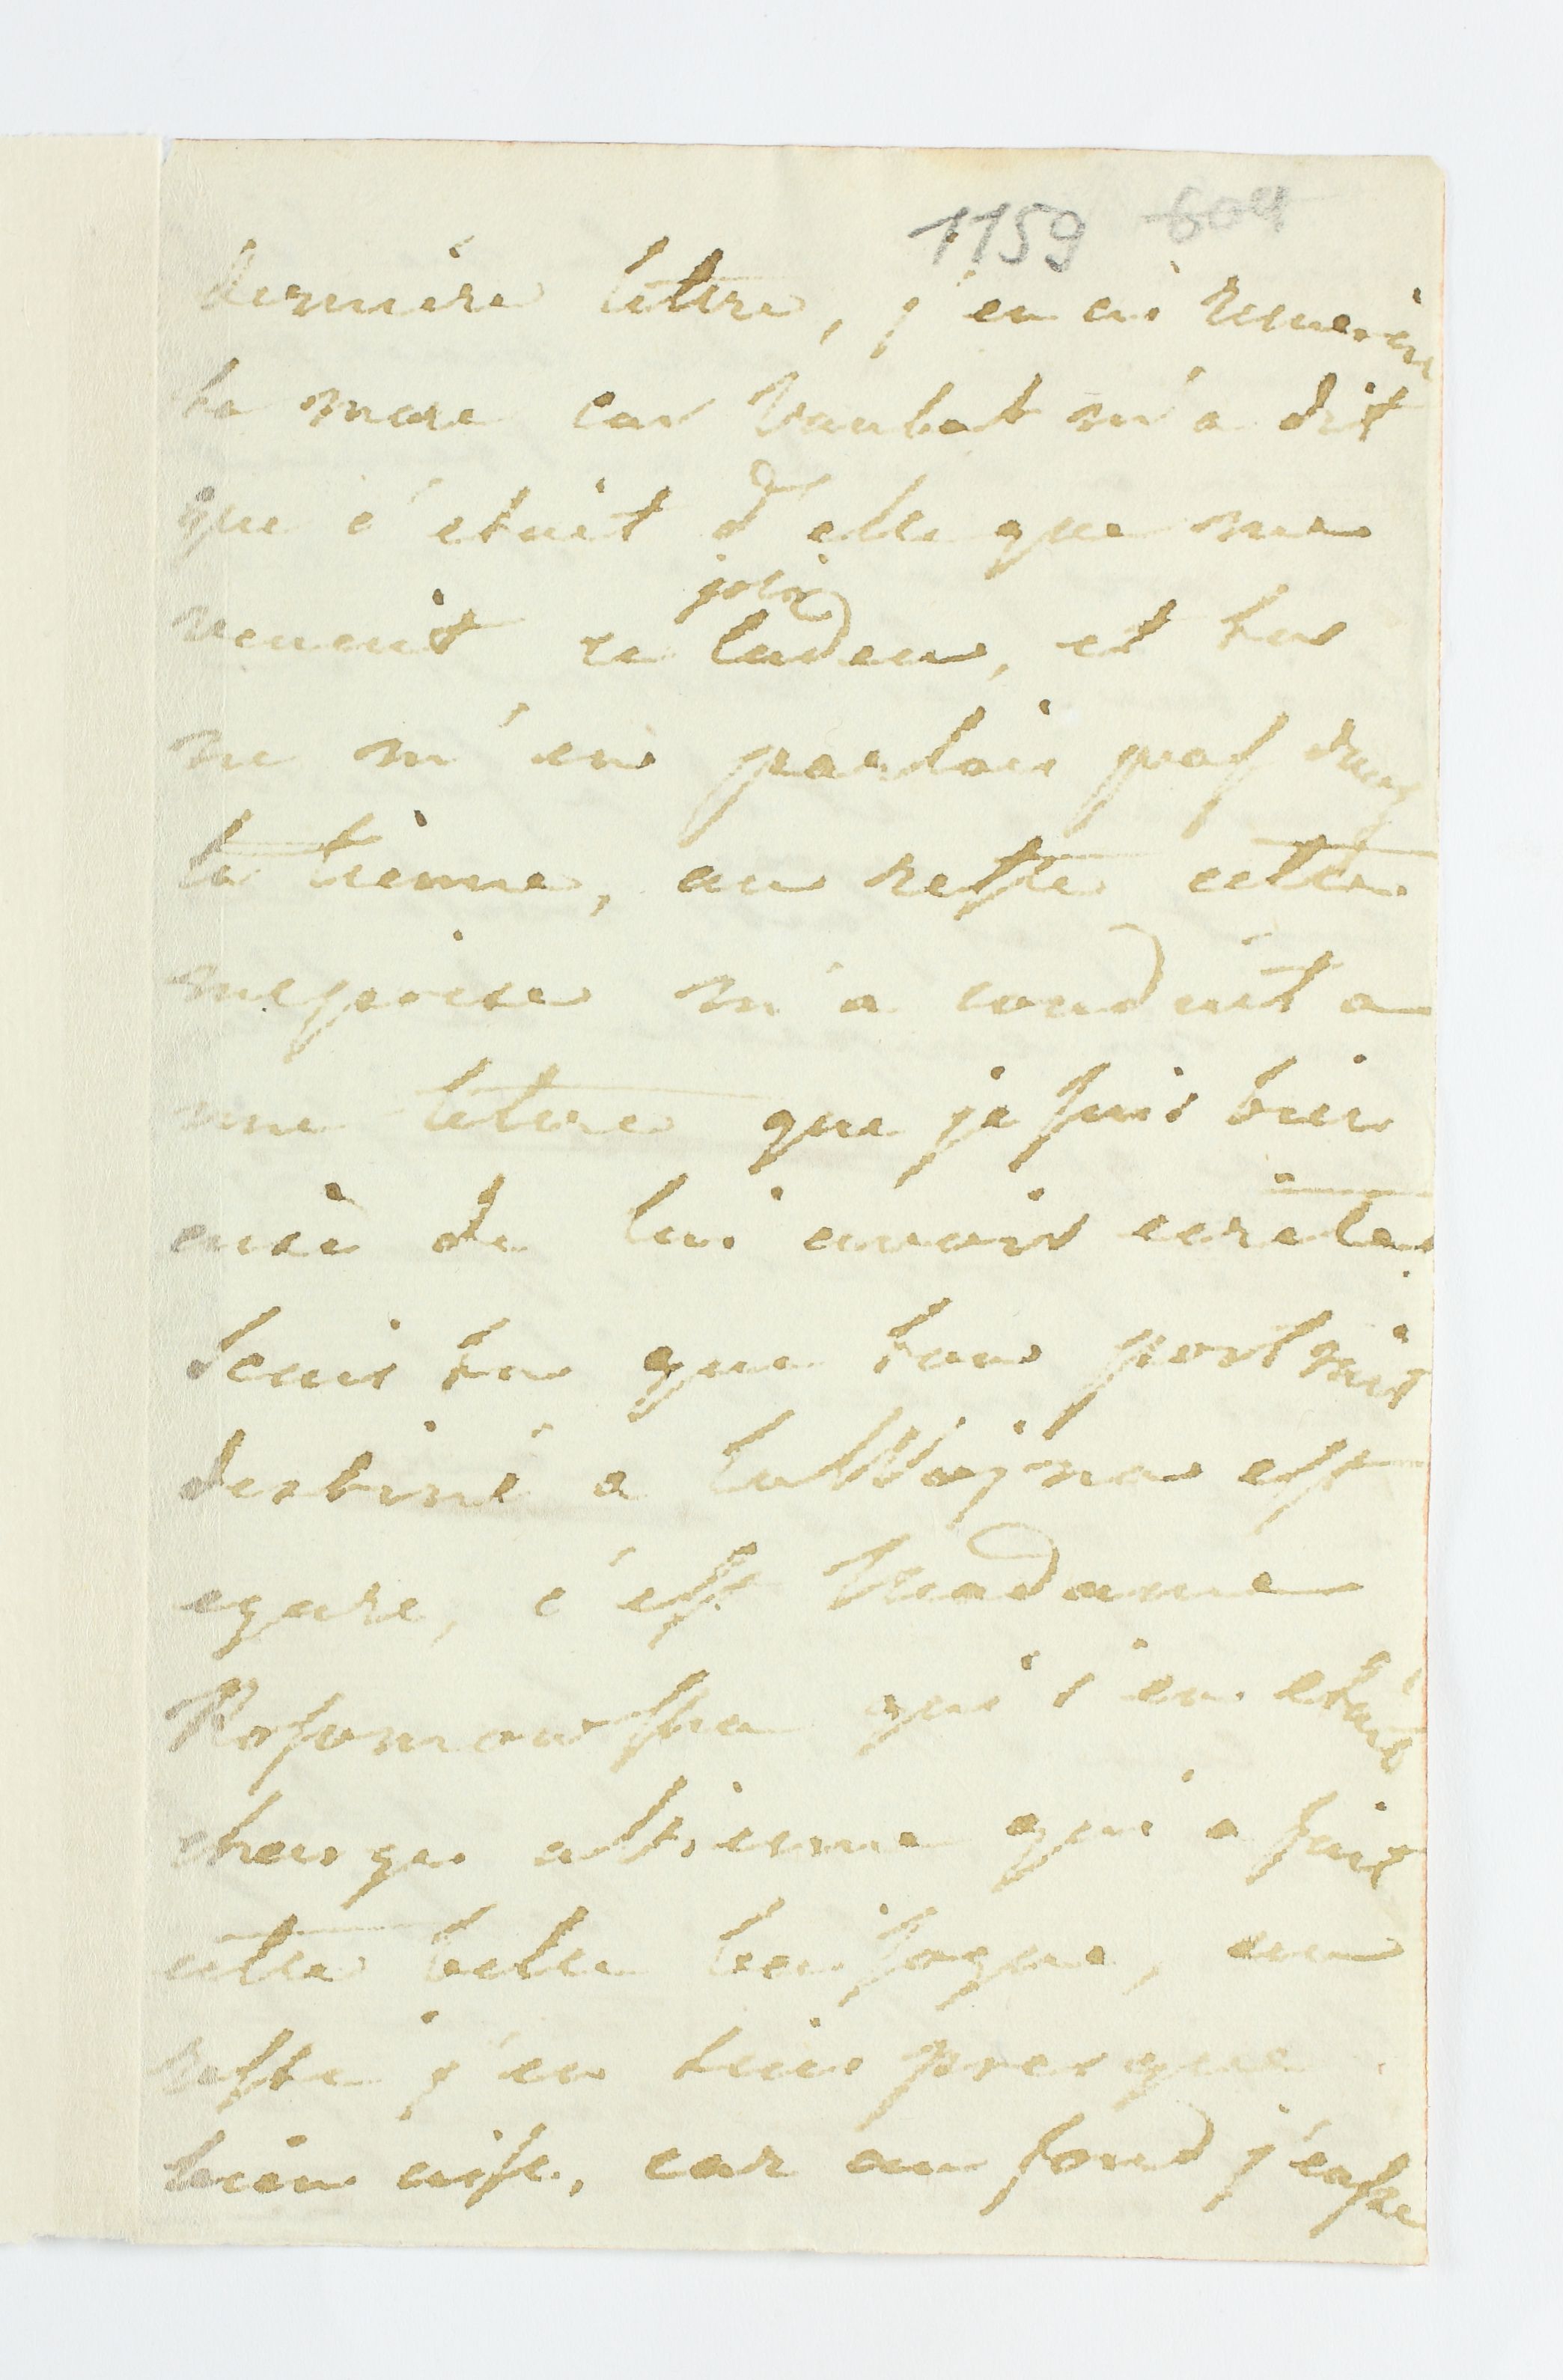 1159 604
derniére lettre, j'en ai remercié
ta mere car Vaubat m'a dit
que c'etait d'elle que me
venait ce joli cadeau, et tu
ne m'en parlois pas dans
la tienne, au reste cette
meprise m'a conduit a
une lettre que je suis bien
aise de lui avoir ecrite.
Scais tu que ton portrait
destiné a la Wojna est
egaré, c'est Madame
Rosumowska qui s'en etait
chargé a Vienne qui a fait
cette belle besogne, au
reste j'en suis presque
bien aise, car au fond j'easse